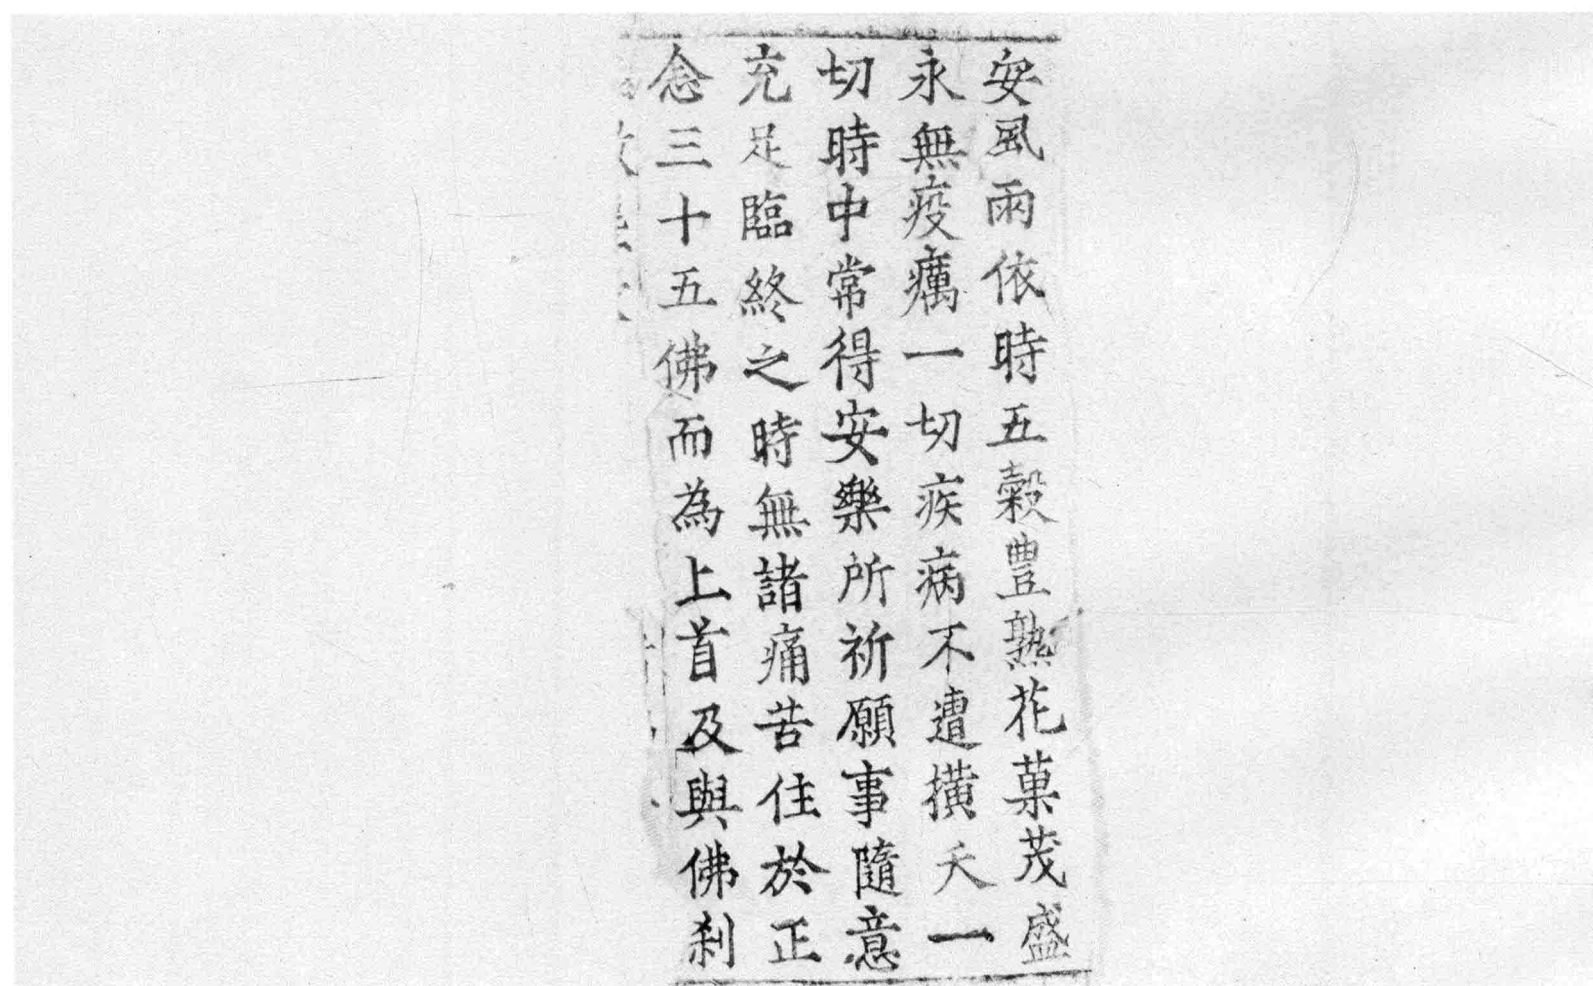 安風雨依時五穀豊熟花菓茂盛
永無疫癘一切疾病不遭橫夭一
切時中常得安樂所祈願事隨意
充足臨終之時無諸痛苦住於正
念三十五佛而為上首及與佛剎